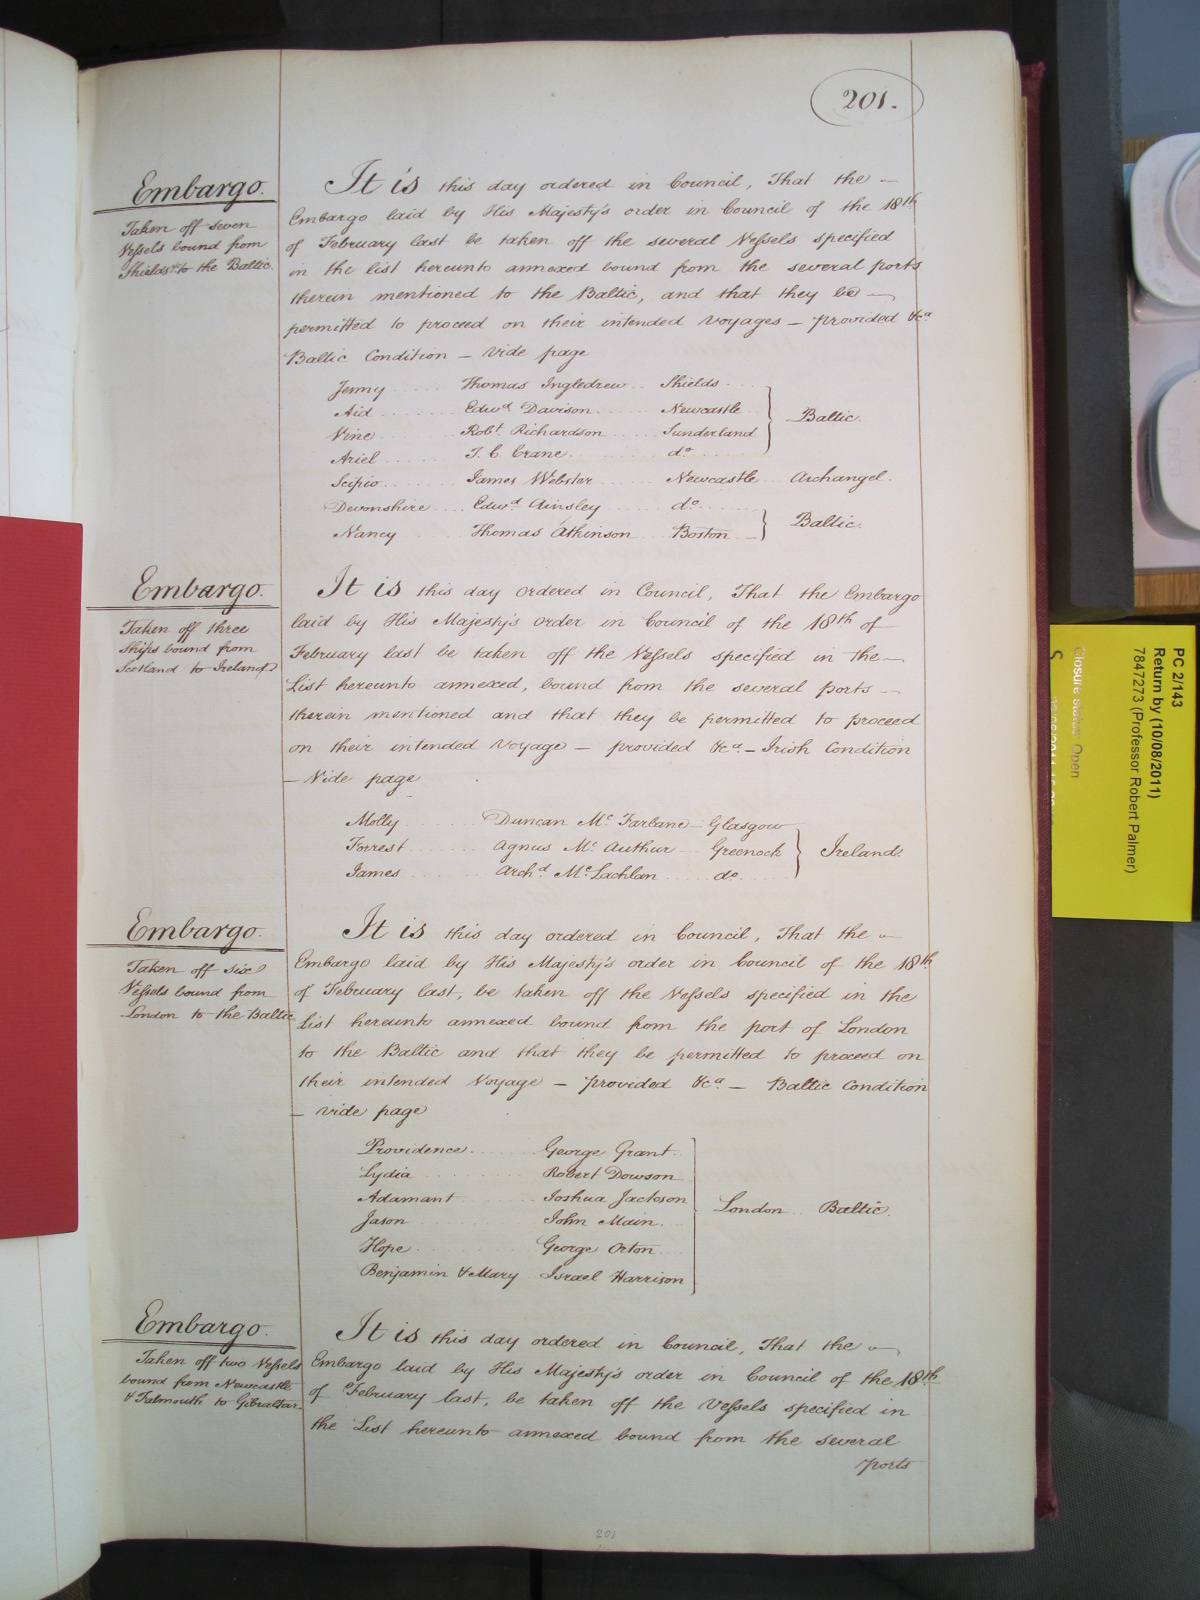 201.
Embargo.
Taken off seven
Vessels bound from
Shields &c to the Baltic.
It is this day ordered in Council, That the —
Embargo laid by His Majesty's order in Council of the 18th
of February last be taken off the several Vessels specified
in the list hereunto annexed bound from the several ports
therein mentioned to the Baltic, and that they be —
permitted to proceed on their intended Voyages — provided &ca
Baltic Condition — Vide page
Jenny ..... Thomas Ingledrew .. Shields ..
Aid ..... Edwd Davison ..... Newcastle
Vine ..... Robt Richardson .... Sunderland
Ariel ..... T. C. Crane ..... do ..... Baltic.
Scipio ..... James Webster ..... Newcastle .. Archangel.
Devonshire .... Edwd Ainsley ..... do .....
Nancy ..... Thomas Atkinson .... Boston ... Baltic.
Embargo.
Taken off three
Ships bound from
Scotland to Ireland
It is this day ordered in Council, That the Embargo
laid by His Majesty's order in Council of the 18th of
February last be taken off the Vessels specified in the —
List hereunto annexed, bound from the several ports —
therein mentioned and that they be permitted to proceed
on their intended Voyage — provided &ca — Irish Condition
— Vide page
Molly ..... Duncan Mc Farlane .. Glasgow
Forrest ..... Agnus Mc Authur .. Greenock
James ..... Archd McLachlan .... do ..... Ireland.
Embargo.
Taken off six
Vessels bound from
London to the Baltic
It is this day ordered in Council, That the —
Embargo laid by His Majesty's order in Council of the 18th
of February last, be taken off the Vessels specified in the
List hereunto annexed bound from the port of London
to the Baltic and that they be permitted to proceed on
their intended Voyage — provided &ca — Baltic Condition
— vide page
Providence ..... George Grant.
Lydia ..... Robert Dowson
Adamant ..... Joshua Jackson
Jason ..... John Main .. London .. Baltic.
Hope ..... George Orton
Benjamin & Mary Israel Harrison
Embargo.
Taken off two Vessels
bound from Newcastle
& Falmouth to Gibraltar.
It is this day ordered in Council, That the —
Embargo laid by His Majesty's order in Council of the 18th
of February last, be taken off the Vessels specified in
the List hereunto annexed bound from the several
ports
201
PC 2/143
Return by (10/08/2011)
7847273 (Professor Robert Palmer)
Closure status: Open